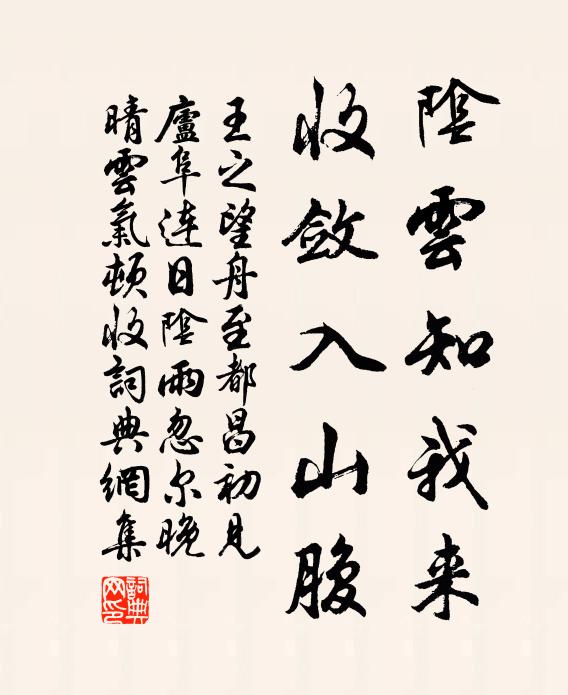 陰雲知我来
收斂入山腹
王之望舟至都昌初見
廬阜連日陰雨忽尔晚
晴雲氣頓收詞典網集
詞典
网印